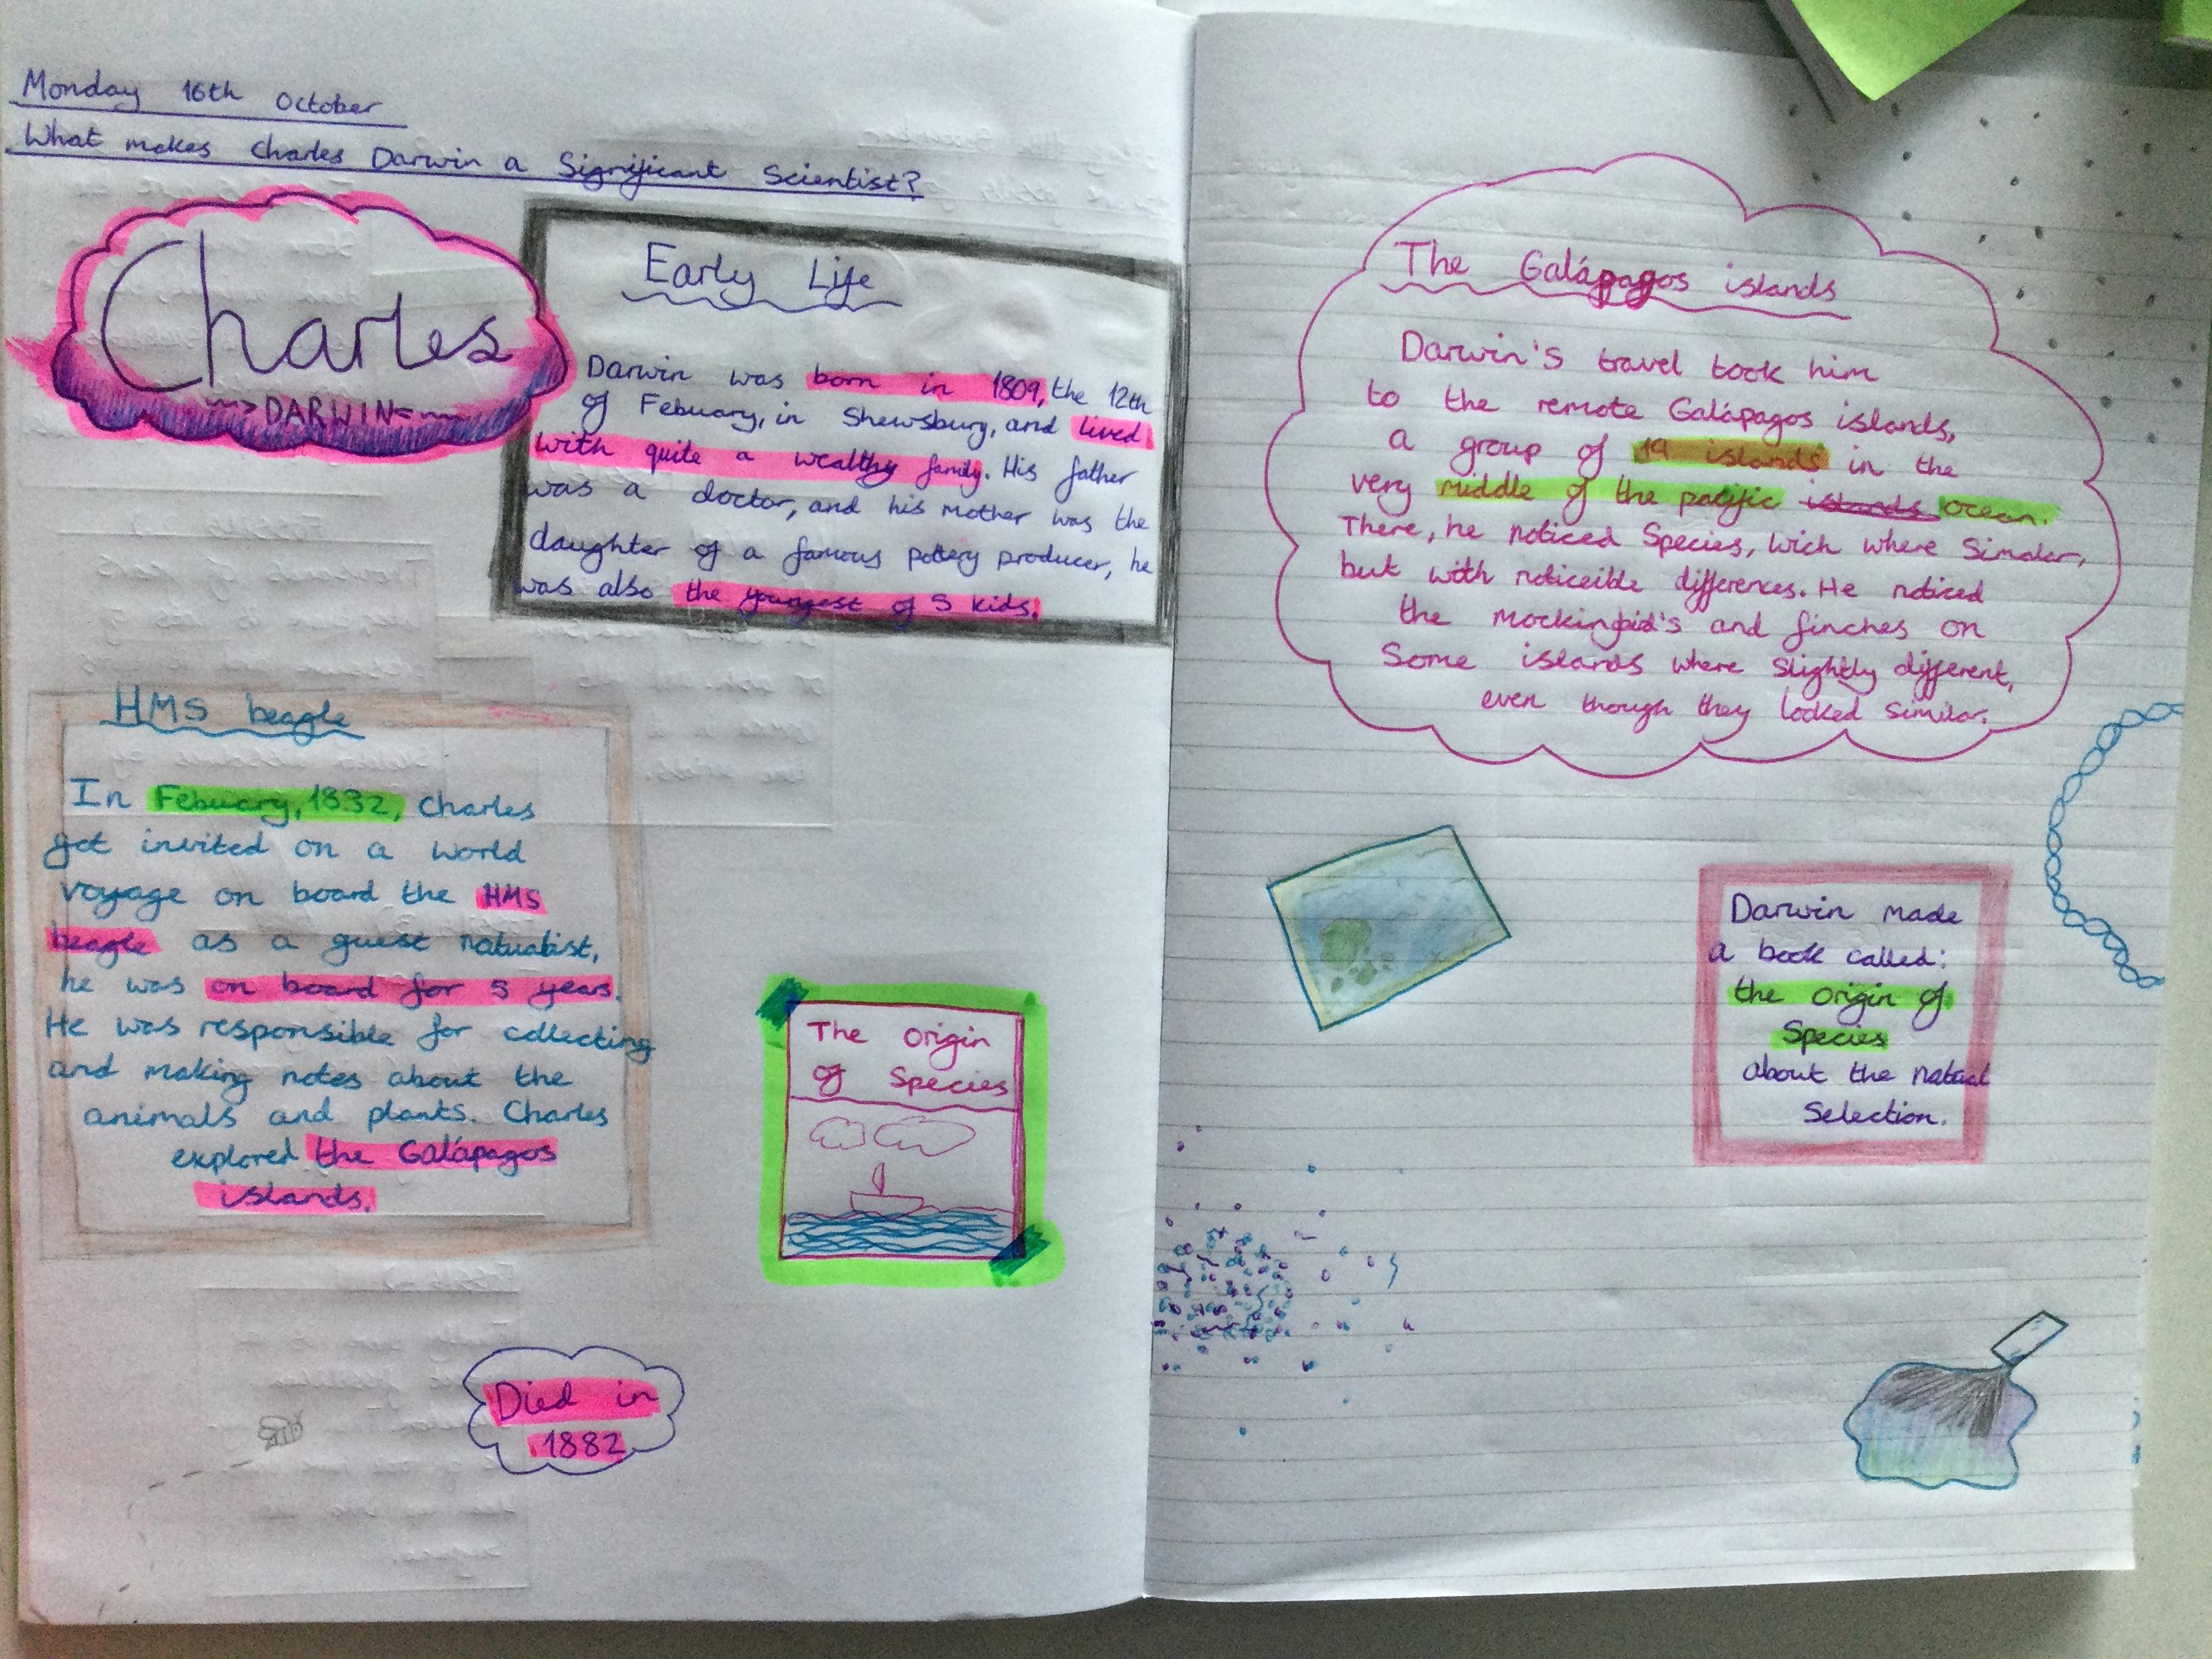 Monday 16th October
What makes Charles Darwin a Significant Scientist?
Charles
DARWIN
Early Life
Darwin was born in 1809, the 12th
of Febuary, in Shewsbury, and lived
with quite a wealthy family. His father
was a doctor, and his mother was the
daughter of a famous pottery producer, he
was also the youngest of 5 kids.
HMS beagle
In Febuary, 1832, Charles
got invited on a world
voyage on board the HMS
beagle as a guest natualist,
he was on board for 5 years.
He was responsible for collecting
and making notes about the
animals and plants. Charles
explored the Galápagos
islands.
The origin
of Species
Died in
1882
The Galápagos islands
Darwin's travel took him
to the remote Galápagos islands,
a group of 19 islands in the
very middle of the pacific islands ocean.
There, he noticed Species, wich where Simalar,
but with noticeible differences. He noticed
the mockingbid's and finches on
Some islands where slightly different,
even though they looked similar.
Darwin made
a book called:
the origin of
Species
about the natual
Selection.